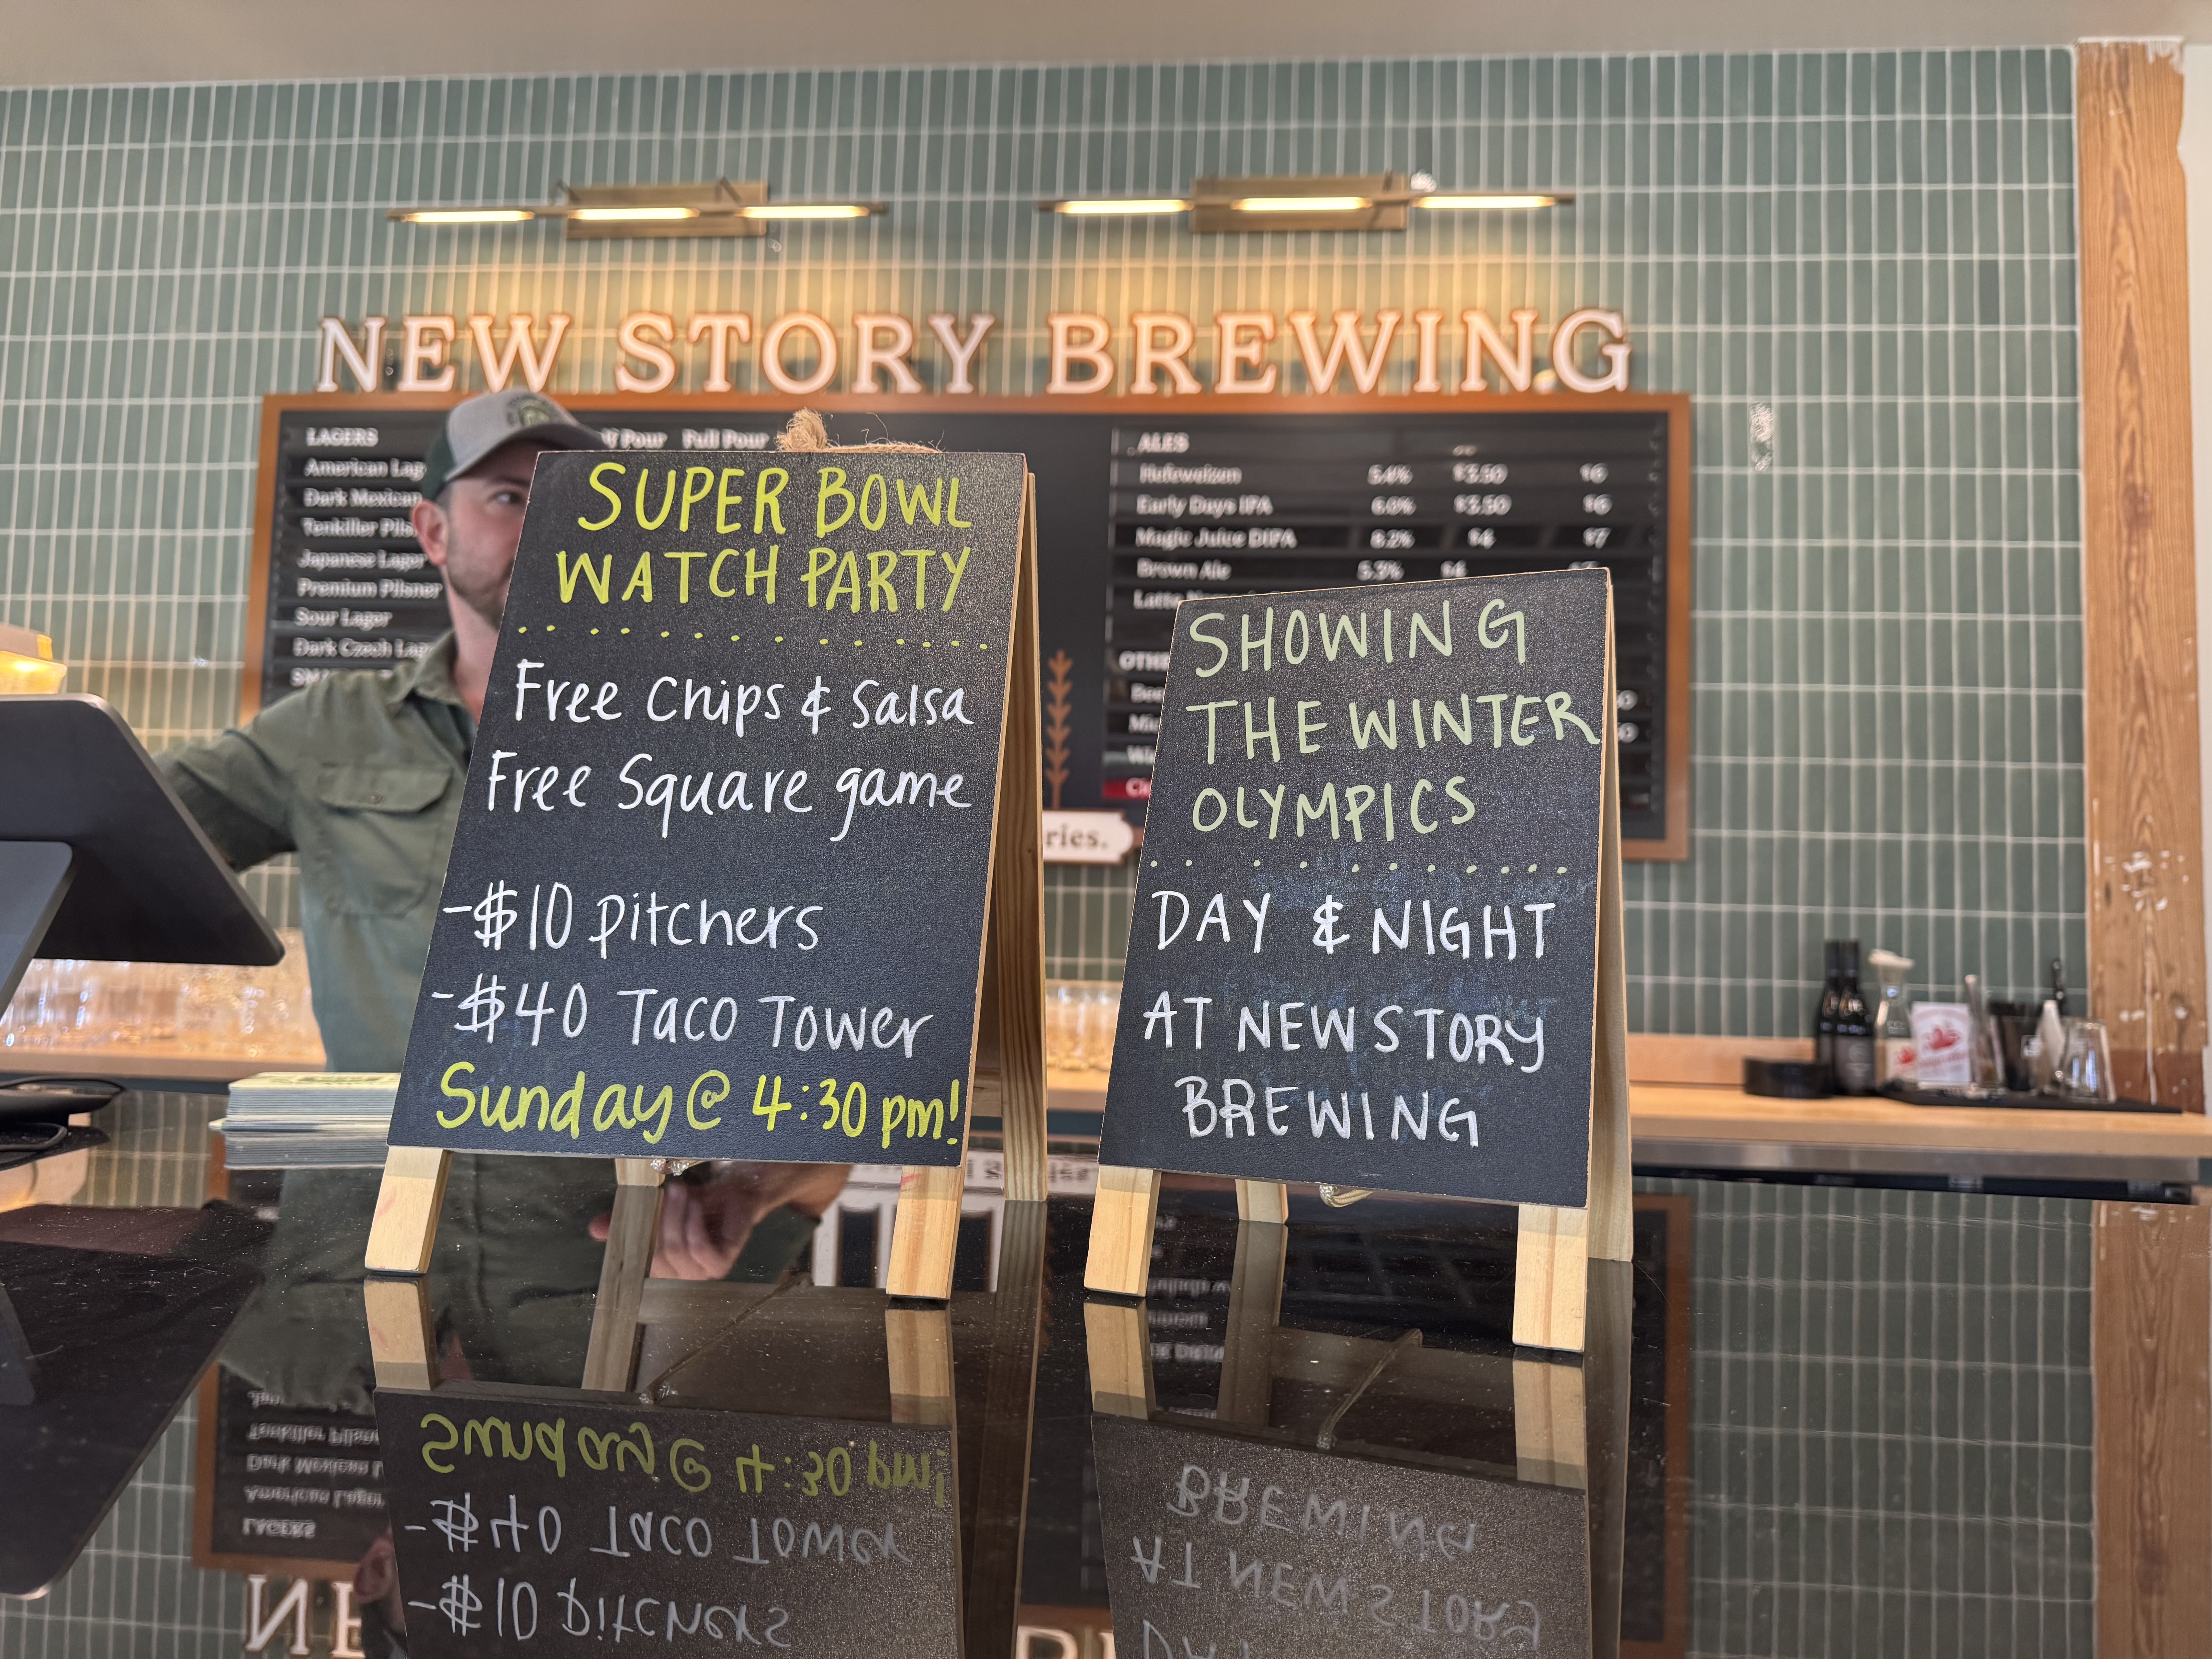 NEW STORY BREWING
LAGERS
Pour Full Pour
American Lag
Dark Mexican
Tenkiller Pils
Japanese Lager
Premium Pilsner
Sour Lager
Dark Czech Lage
ALES
Hefeweizen 5.4% $3.50 $6
Early Days IPA 6.0% $3.50 $6
Magic Juice DIPA 8.2% $4 $7
Brown Ale 5.3% $4
OTHE
ries.
SUPER BOWL
WATCH PARTY
Free Chips & Salsa
Free Square game
-$10 pitchers
-$40 Taco Tower
Sunday @ 4:30 pm!
SHOWING
THE WINTER
OLYMPICS
DAY & NIGHT
AT NEW STORY
BREWING